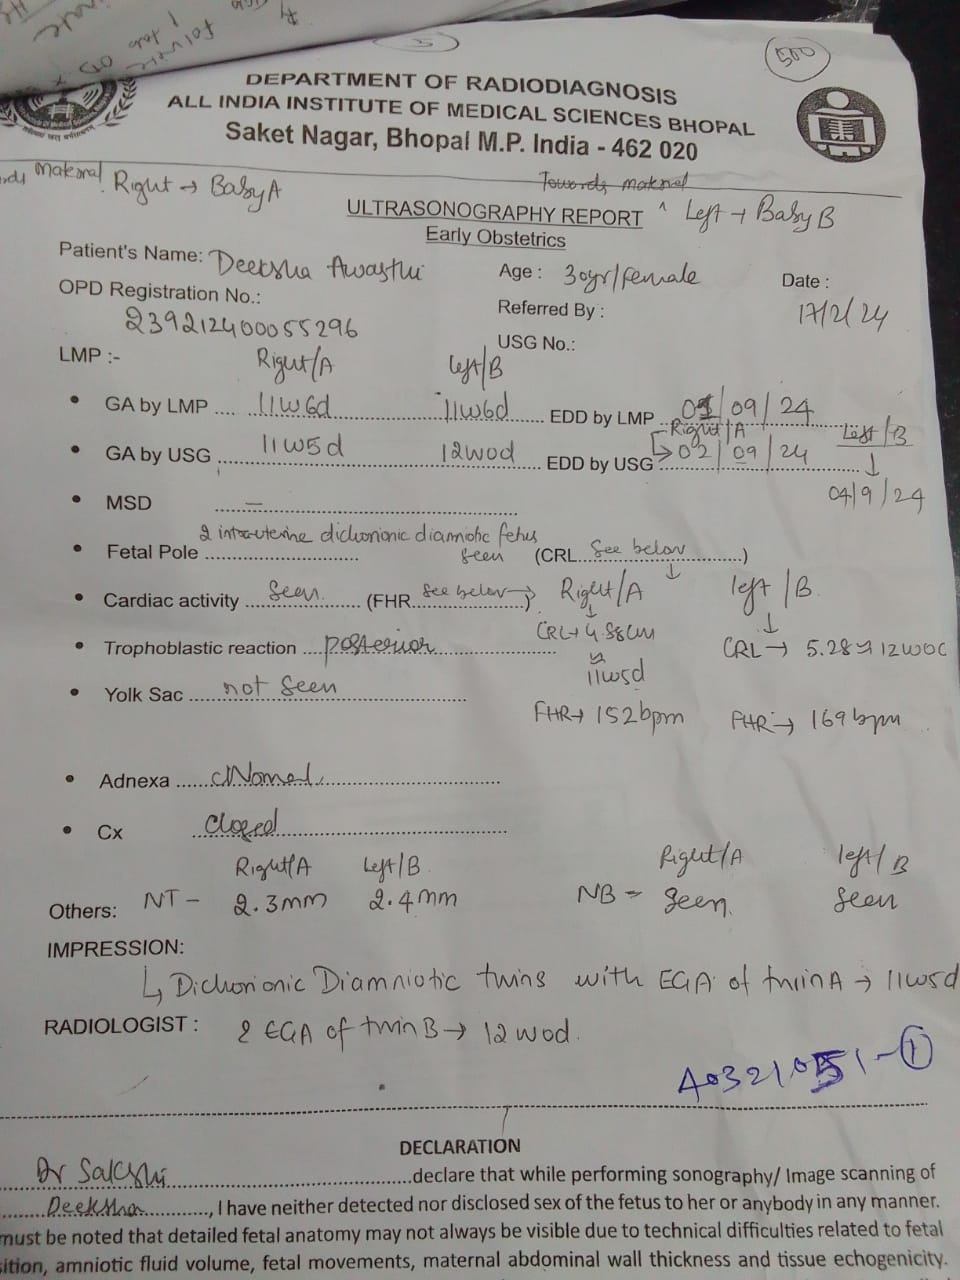 (3)
500
DEPARTMENT OF RADIODIAGNOSIS
ALL INDIA INSTITUTE OF MEDICAL SCIENCES BHOPAL
Saket Nagar, Bhopal M.P. India - 462 020
Maternal Right → Baby A
Towards maternal
Left → Baby B
ULTRASONOGRAPHY REPORT
Early Obstetrics
Patient's Name: Deeksha Awasthi Age : 30yr/female Date :
17/2/24
OPD Registration No.: Referred By :
239212400055296
USG No.:
LMP :- Right/A Left/B
• GA by LMP .... 11w6d 11w6d EDD by LMP 01/09/24
Right/A Left/B
• GA by USG 11w5d 12w0d EDD by USG → 02/09/24 ↓
04/9/24
• MSD —
2 intrauterine dichorionic diamniotic fetus
• Fetal Pole seen (CRL... See below ...) ↓
• Cardiac activity seen. (FHR.. See below → ..) Right/A left/B
↓ ↓
• Trophoblastic reaction .... posterior CRL → 4.98cm CRL → 5.28 ≈ 12w0d
≈ 11w5d
• Yolk Sac ..... not seen
FHR → 152bpm FHR → 169bpm
• Adnexa ...... Normal
• Cx closed
Right/A Left/B Right/A left/B
Others: NT - 2.3mm 2.4mm NB = Seen. Seen
IMPRESSION:
↳ Dichorionic Diamniotic twins with EGA of twin A → 11w5d
RADIOLOGIST : & EGA of twin B → 12w0d.
A0321051-①
DECLARATION
Dr Sakshi ......declare that while performing sonography/ Image scanning of
......Deeksha......, I have neither detected nor disclosed sex of the fetus to her or anybody in any manner.
must be noted that detailed fetal anatomy may not always be visible due to technical difficulties related to fetal
sition, amniotic fluid volume, fetal movements, maternal abdominal wall thickness and tissue echogenicity.